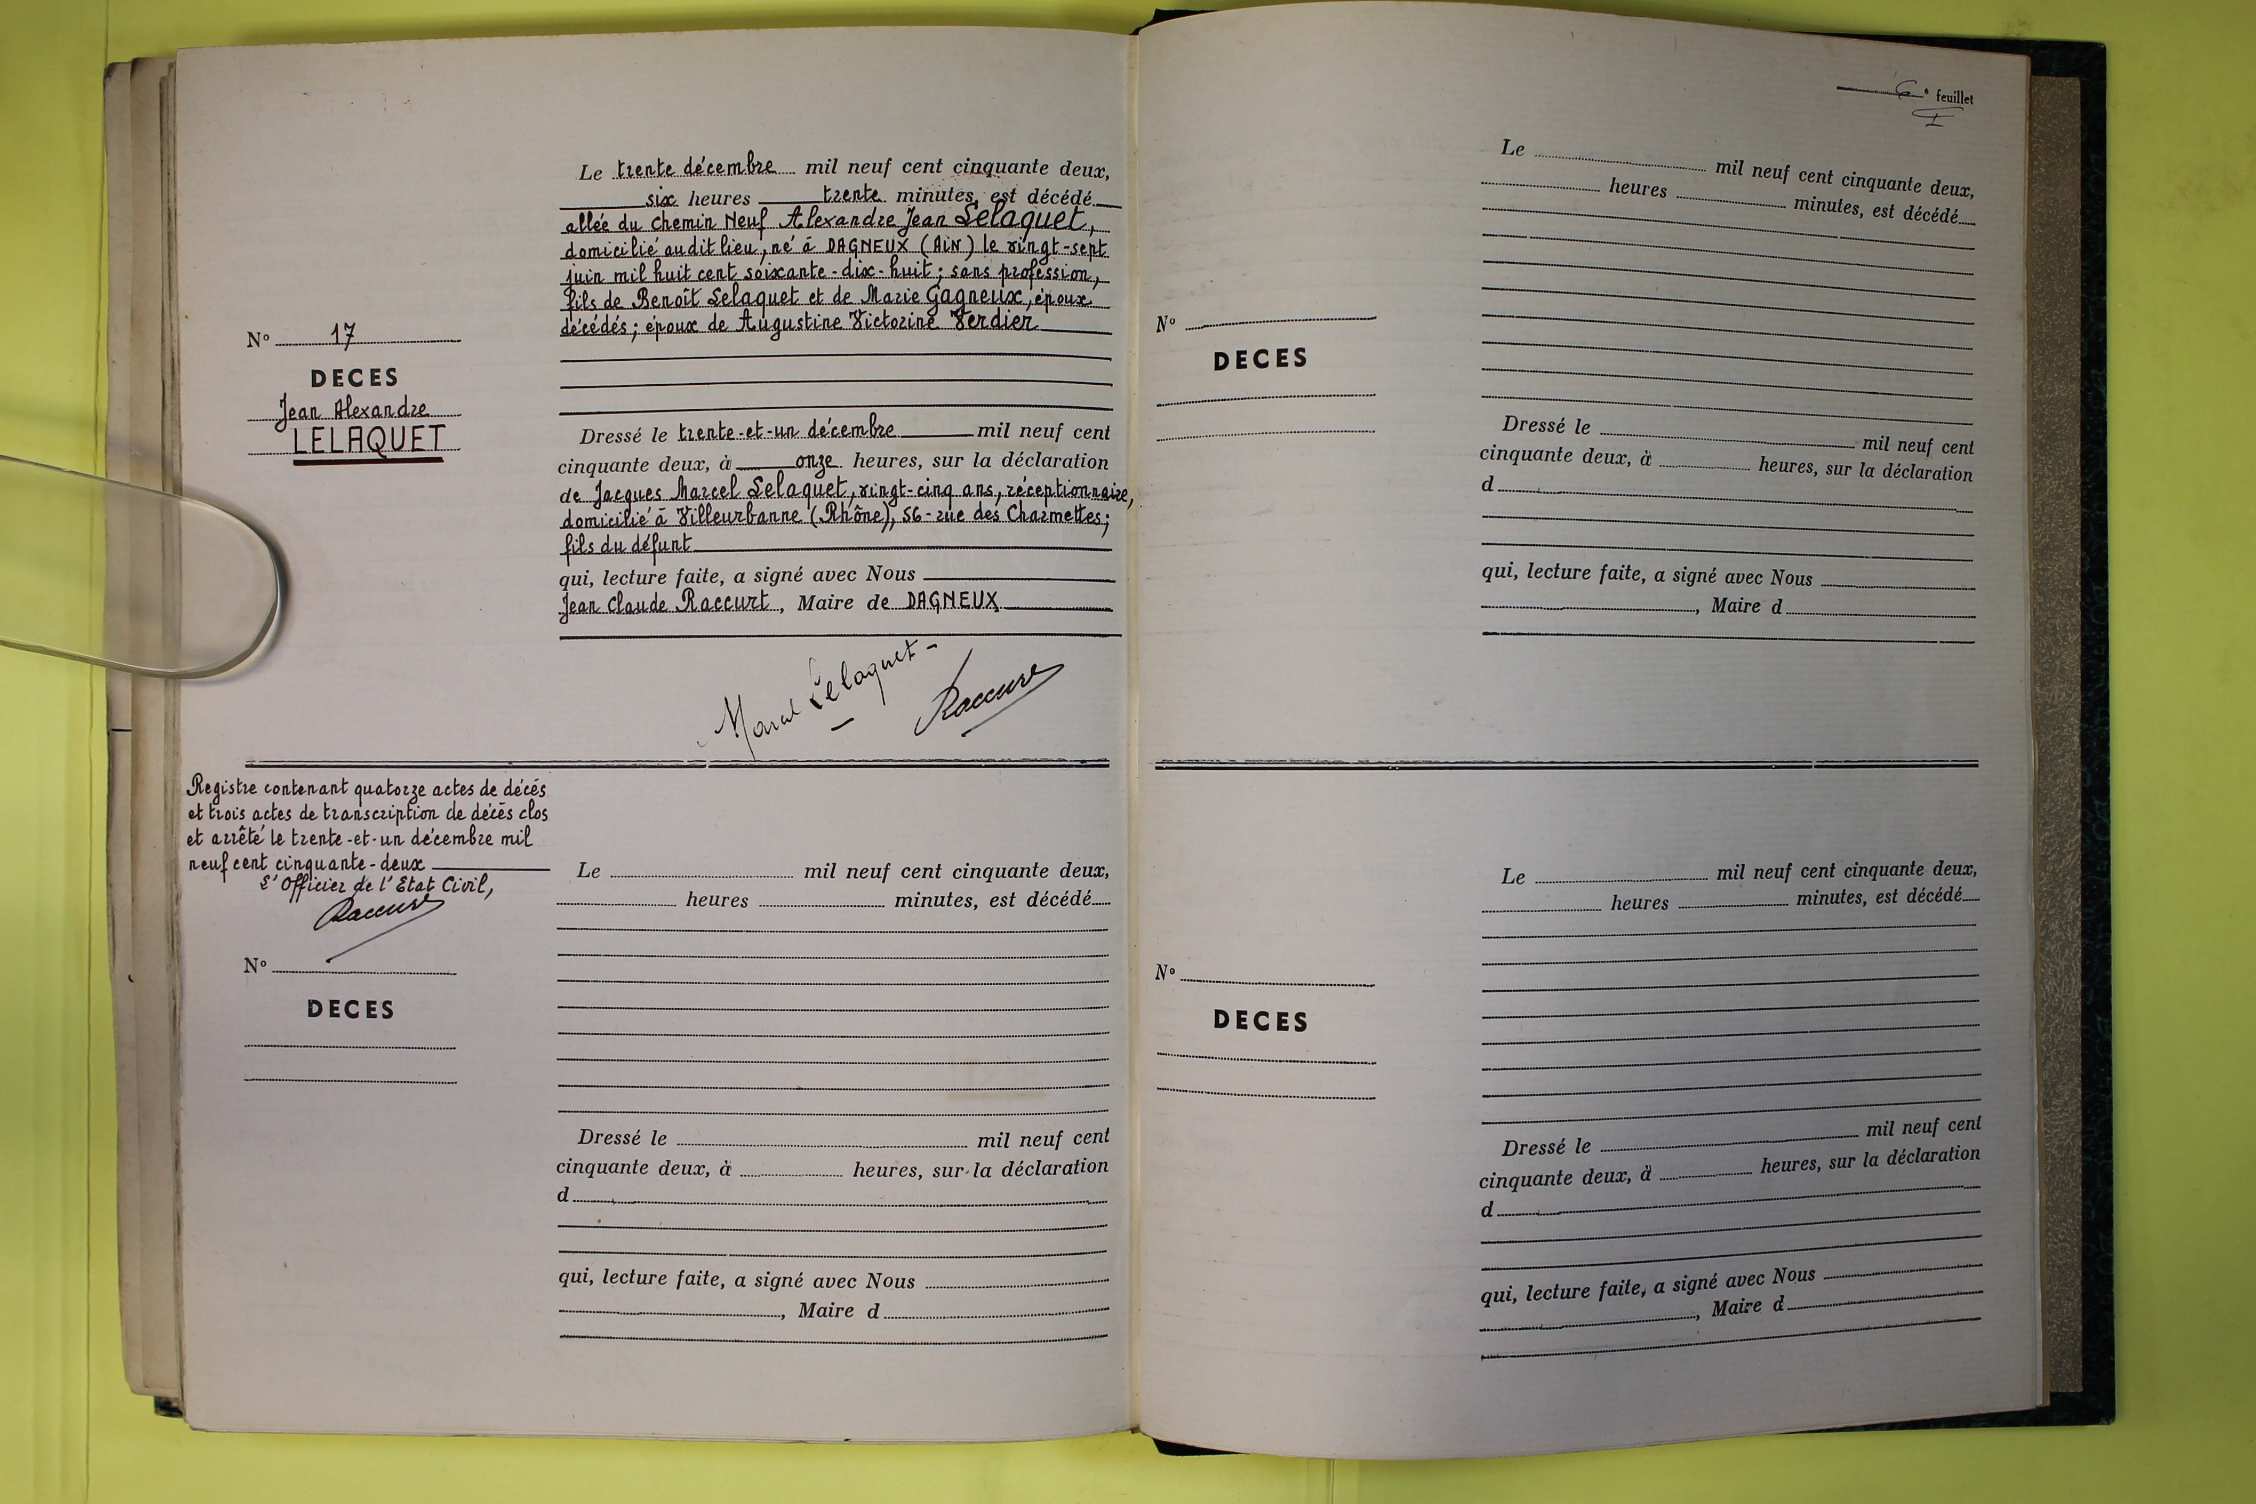 Le trente décembre mil neuf cent cinquante deux,
six heures trente minutes, est décédé
allée du Chemin Neuf Alexandre Jean Lelaquet,
domicilié audit lieu, né à DAGNEUX (AiN) le vingt-sept
juin mil huit cent soixante-dix-huit; sans profession,
fils de Benoît Lelaquet et de Marie Gagneux, époux
décédés; époux de Augustine Victorine Verdier
N° 17
DECES
Jean Alexandre
LELAQUET
Dressé le trente-et-un décembre mil neuf cent
cinquante deux, à onze heures, sur la déclaration
de Jacques Marcel Lelaquet, vingt-cinq ans, réceptionnaire,
domicilié à Villeurbanne (Rhône), 56-rue des Charmettes;
fils du défunt
qui, lecture faite, a signé avec Nous
Jean Claude Raccurt, Maire de DAGNEUX
Marcel Lelaquet
Raccurt
Registre contenant quatorze actes de décès
et trois actes de transcription de décès clos
et arrêté le trente-et-un décembre mil
neuf cent cinquante-deux
L'Officier de l'Etat Civil,
Raccurt
Le mil neuf cent cinquante deux,
heures minutes, est décédé
N°
DECES
Dressé le mil neuf cent
cinquante deux, à heures, sur la déclaration
d
qui, lecture faite, a signé avec Nous
, Maire d
6e feuillet
Le mil neuf cent cinquante deux,
heures minutes, est décédé
N°
DECES
Dressé le mil neuf cent
cinquante deux, à heures, sur la déclaration
d
qui, lecture faite, a signé avec Nous
, Maire d
Le mil neuf cent cinquante deux,
heures minutes, est décédé
N°
DECES
Dressé le mil neuf cent
cinquante deux, à heures, sur la déclaration
d
qui, lecture faite, a signé avec Nous
, Maire d